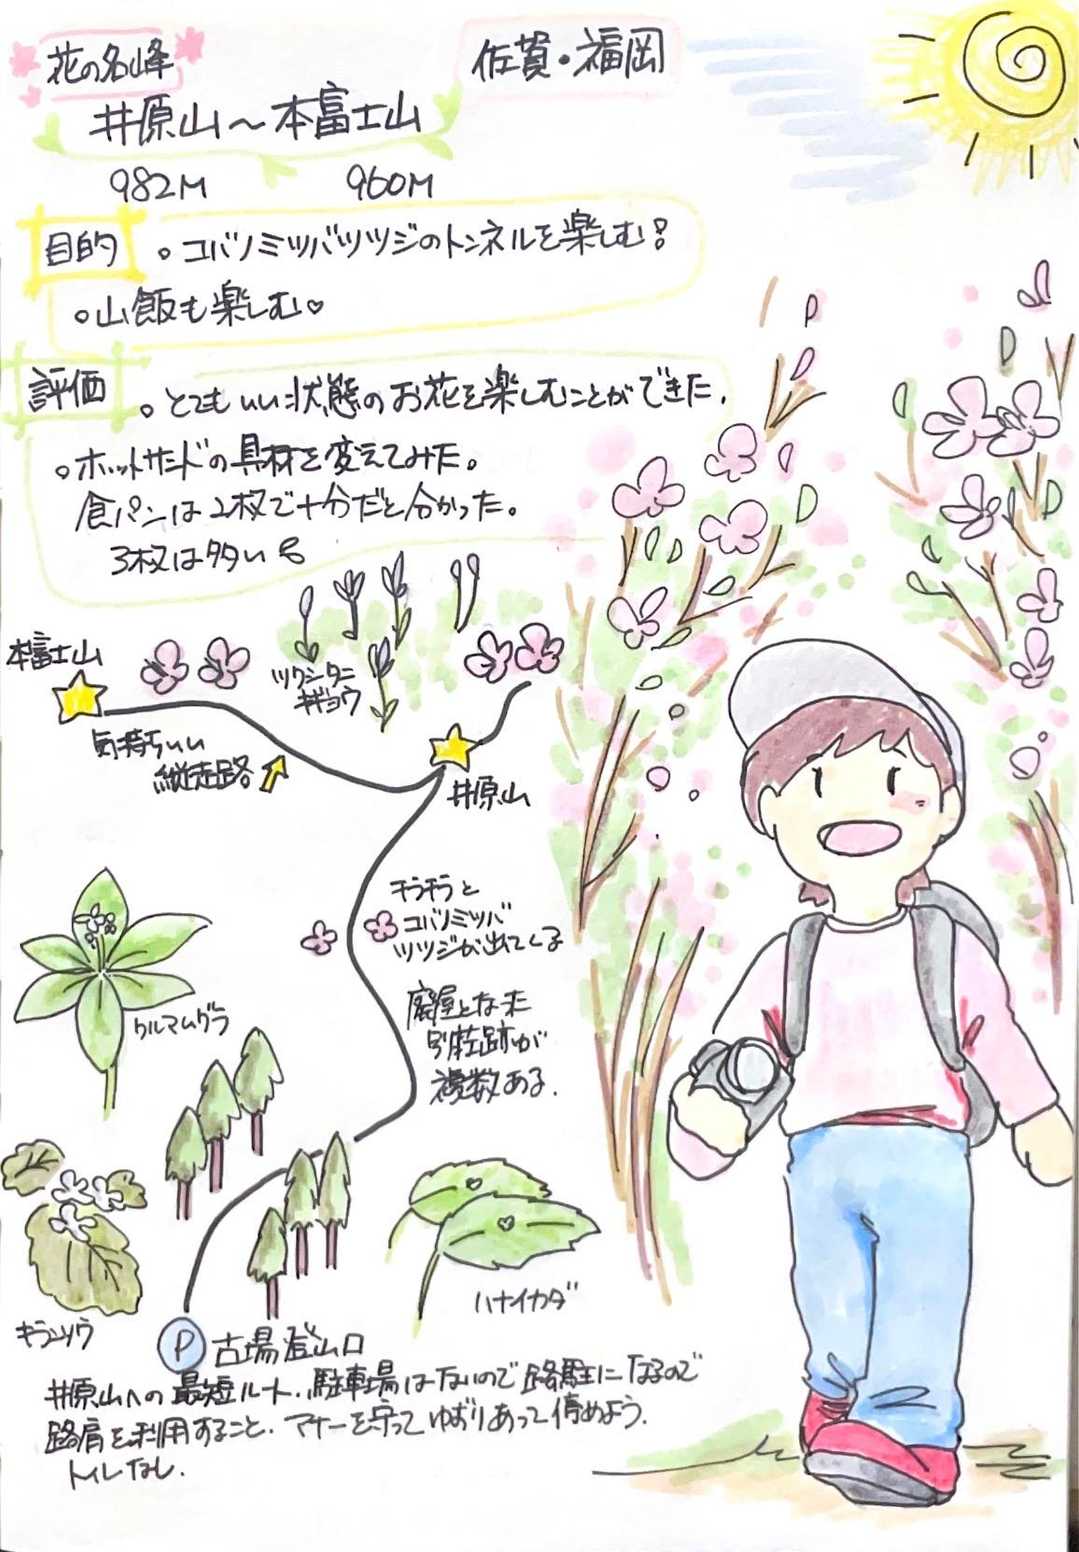 花の名峰
佐賀・福岡
井原山～本富士山
982M 960M
目的
。コバノミツバツツジのトンネルを楽しむ!
。山飯も楽しむ♡
評価
。とてもいい状態のお花を楽しむことができた.
。ホットサンドの具材を変えてみた。
食パンは2枚で十分だと分かった。
3枚は多い
本富士山
ツクシタニ
ギキョウ
気持ちいい
縦走路
井原山
チラチラと
コバノミツバ
ツツジが出てくる
廃屋となった
別荘跡が
複数ある.
クルマムグラ
ハナイカダ
キランソウ
P 古場登山口
井原山への最短ルート.駐車場はないので路駐になるので
路肩を利用すること.マナーを守ってゆずりあって停めよう.
トイレなし.